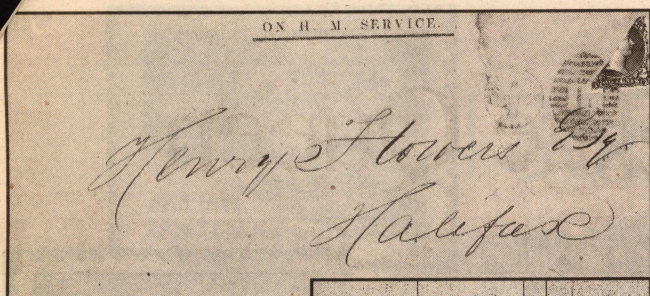 ON H. M. SERVICE.
Henry Flowers Esq
Halifax